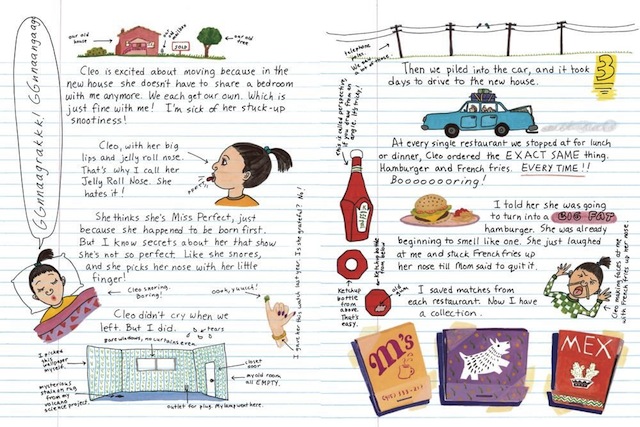 GGnnaagrakkk! GGnnaangaag
our old house
our old mailbox
SOLD
our old tree
Cleo is excited about moving because in the
new house she doesn't have to share a bedroom
with me anymore. We each get our own. Which is
just fine with me! I'm sick of her stuck-up
snootiness!
Cleo, with her big
lips and jelly roll nose.
That's why I call her
Jelly Roll Nose. She
hates it!
She thinks she's Miss Perfect, just
because she happened to be born first.
But I know secrets about her that show
she's not so perfect. Like she snores,
and she picks her nose with her little
finger!
Cleo snoring.
Boring!
oooh, yuuck!
I gave her this watch last year. Is she grateful? No!
Cleo didn't cry when we
left. But I did.
tears
bare windows, no curtains even
I picked
this
wallpaper
myself.
closet
door
my old room
all EMPTY.
mysterious
stain on rug
from my
volcano
science project.
outlet for plug. My lamp went here.
telephone
poles.
Then we piled into the car, and it took
days to drive to the new house.
3
this is called perspective,
if you draw from an
angle. It's tricky!
At every single restaurant we stopped at for lunch
or dinner, Cleo ordered the EXACT SAME thing.
Hamburger and French fries. EVERY TIME!!
Booooooooring!
I told her she was going
to turn into a BIG FAT
hamburger. She was already
beginning to smell like one. She just laughed
at me and stuck French fries up
her nose till Mom said to quit it.
Ketchup bottle
from below
old gum
Ketchup
bottle from
above.
That's
easy.
I saved matches from
each restaurant. Now I have
a collection.
Cleo making faces at me
with French fries up her nose
M's
MEX